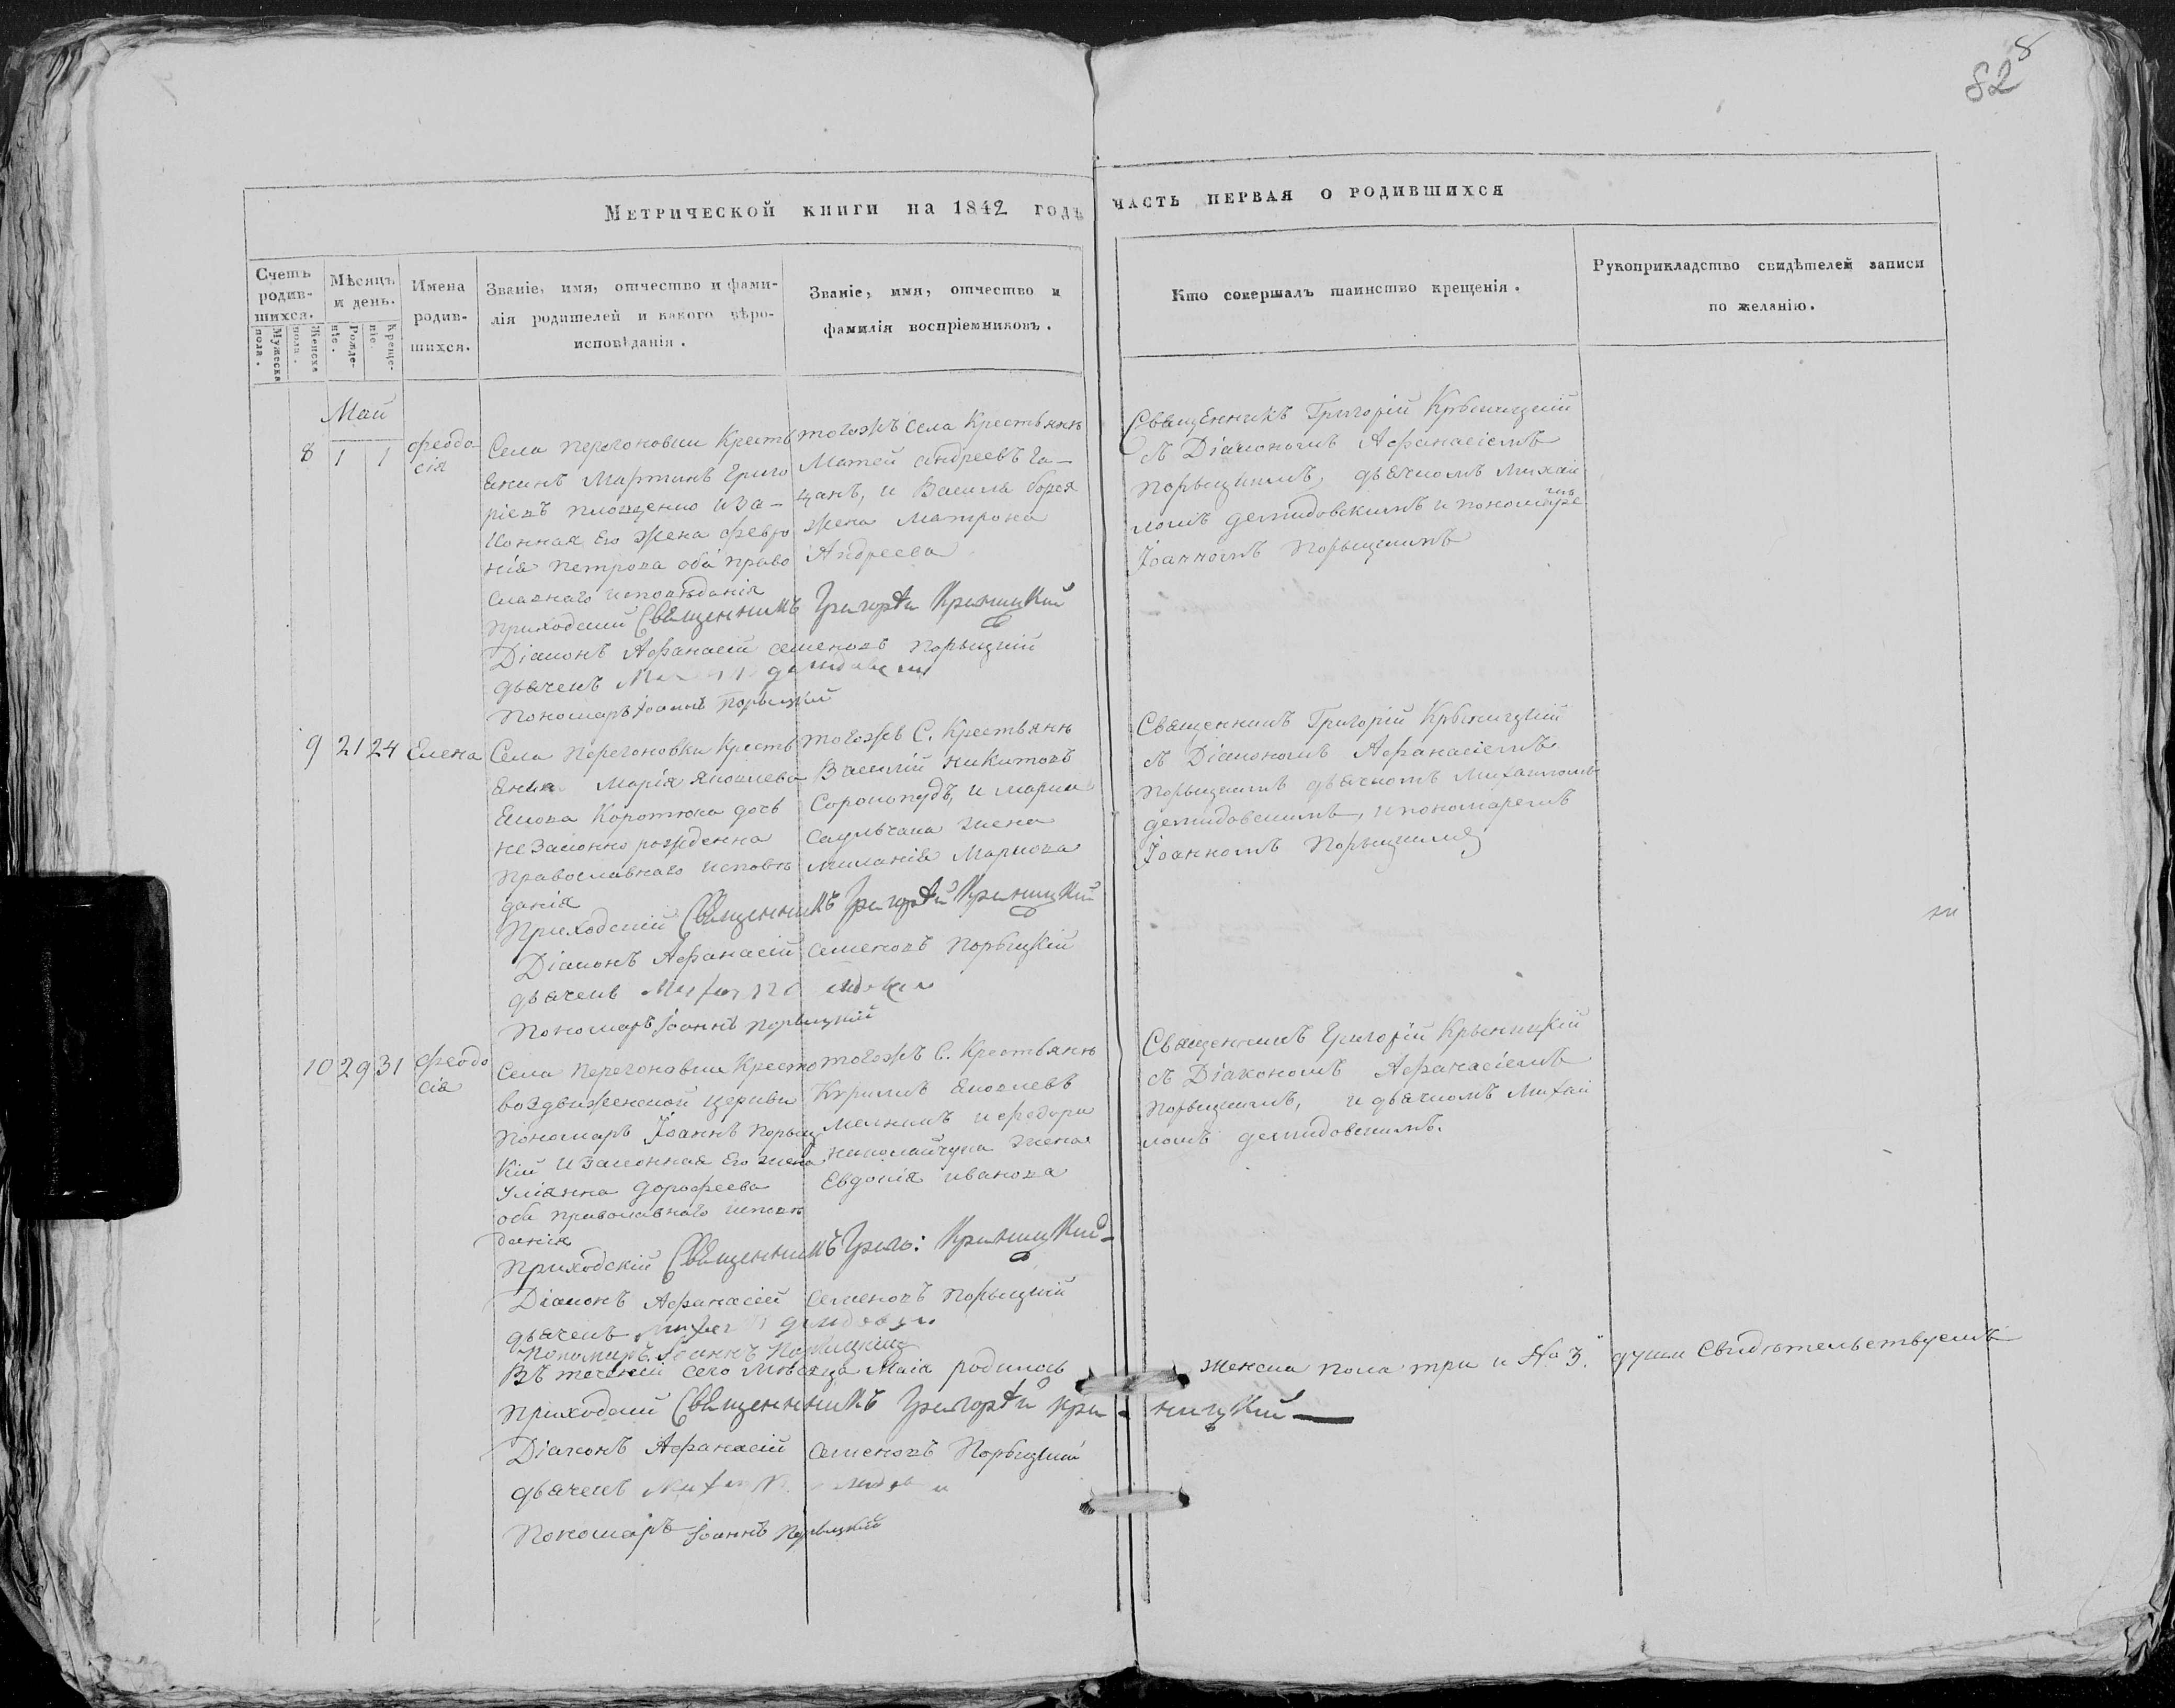 82 8
Метрической книги на 1842 годъ
часть первая о родившихся
Счетъ родившихся.
Мужеска пола.
Женска пола.
Мѣсяцъ и день.
Рожденіе.
Крещеніе.
Имена родившихся.
Званіе, имя, отчество и фамилія родителей и какого вѣроисповѣданія.
Званіе, имя, отчество и фамилія воспріемниковъ.
Кто совершалъ таинство крещенія.
Рукоприкладство свидѣтелей записи
по желанію.
Май
8 1 1
Феодо
сія
Села Перегоновки Кресть
янинъ Мартинъ Григо
ріевъ и За-
конная Его Жена Февро
нія Петрова оба право
славнаго исповѣданія
тогожъ села Крестьянн
Матей Андреевъ Га-
цанъ, и Василя
Жена Матрона
Андреева
Священникъ Григорій Крыницкій
съ Діакономъ Афанасіемъ
Порыцкимъ, дьячкомъ Михаи
ломъ демидовскимъ и пономаремъ
Іоанномъ Порыцкимъ
приходскій Священникъ Григорій Криницкій
Діаконъ Афанасій Семеновъ Порыцкій
дьячекъ
Пономаръ Іоаннъ Порыцкій
9 21 24 Елена
Села Перегоновки Кресть
янка Марія Яковлева
Якова Коротюка дочь
незаконно рожденна
Православнаго исповѣ
данія
тогожъ С. Крестьянн
Василій Никитовъ
Сорокопудъ, и Марка
жена
Миланія Маркова
Священникъ Григорій Крыницкій
съ Діакономъ Афанасіемъ
Порыцкимъ дьячкомъ Михаиломъ
демидовскимъ, и пономаремъ
Іоанномъ Порыцкимъ
Приходскій Священникъ Григорій Криницкій
Діаконъ Афанасій Семеновъ Порыцкій
дьячекъ
Пономаръ Іоаннъ Порыцкій
10 29 31
Феодо
сія
Села Перегоновки Кресто
воздвиженской церкви
Пономаръ Іоаннъ Порыц
кій и Законная Его жена
Уліянна Дорофеева
оба православнаго исповѣ
данія
тогожъ С. Крестьянн
Курилъ Яковлевъ
Мельникъ и Федора
Николайчука жена
Евдокія иванова
Священникъ Григорій Крыницкій
съ Діакономъ Афанасіемъ
Порыцкимъ, и дьячкомъ Михаи
ломъ демидовскимъ.
Приходскій Священникъ Григо: Криницкій
Діаконъ Афанасій Семеновъ Порыцкій
дьячекъ
Пономаръ Іоаннъ Порыцкій
Въ теченіи сего Мѣсяца Маія родилось женска пола три и № 3. души Свидѣтельствуемъ
Приходскій Священникъ Григорій Криницкій
Діаконъ Афанасій Семеновъ Порыцкій
дьячекъ
Пономаръ Іоаннъ Порыцкій